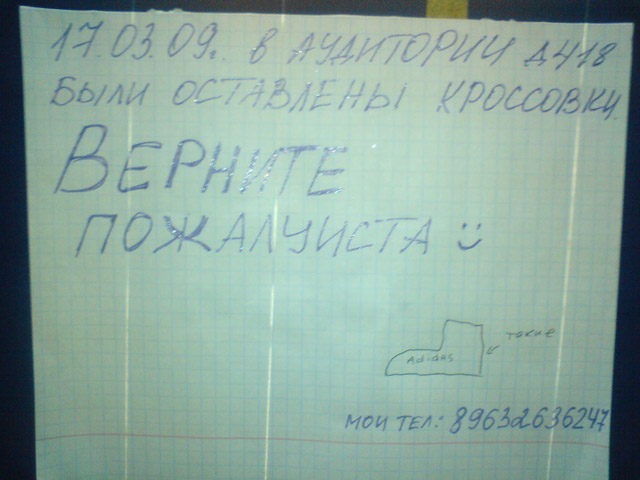 17.03.09г. в АУДИТОРИИ Д418
БЫЛИ ОСТАВЛЕНЫ КРОССОВКИ.
ВЕРНИТЕ
ПОЖАЛУИСТА :)
такие
Adidas
МОИ ТЕЛ: 89632636247